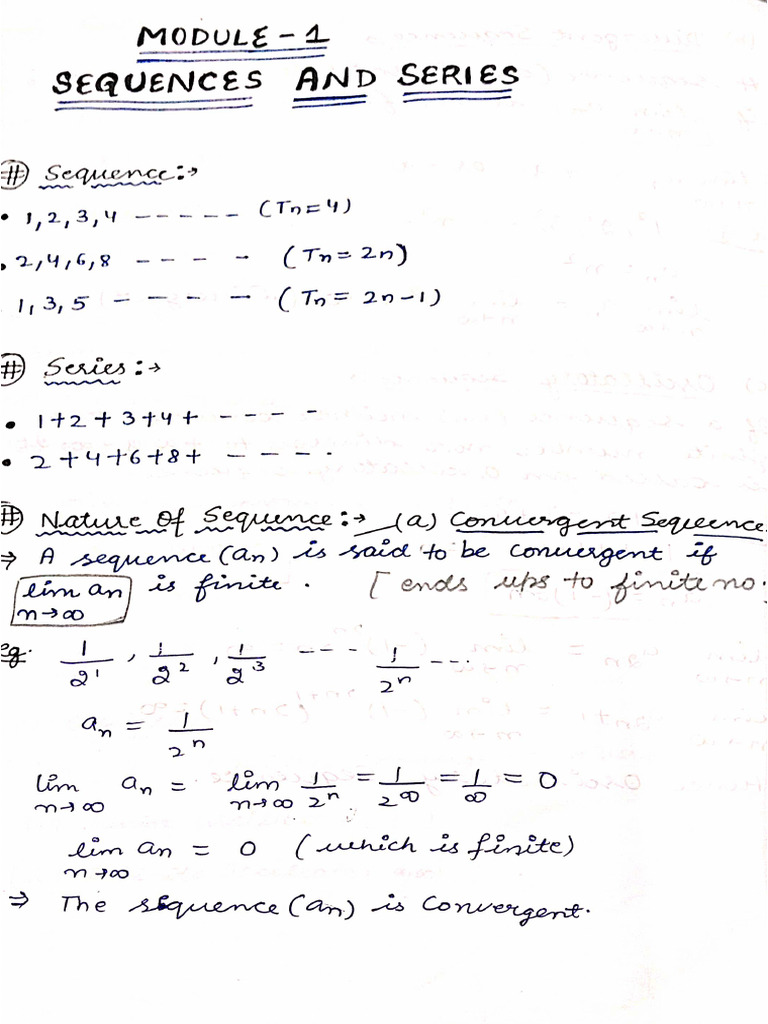 MODULE - 1
SEQUENCES AND SERIES
# Sequence :→
• 1, 2, 3, 4 ----- (Tn = 4)
• 2, 4, 6, 8 ---- (Tn = 2n)
1, 3, 5 ---- (Tn = 2n-1)
# Series :→
• 1+2+3+4+ ----
• 2+4+6+8+ ----
# Nature Of Sequence :→ (a) Convergent Sequence
⇒ A sequence (an) is said to be convergent if
lim n→∞ an is finite. [ ends ups to finite no.
eg. 1/2¹, 1/2², 1/2³ --- 1/2ⁿ ---
an = 1/2ⁿ
lim n→∞ an = lim n→∞ 1/2ⁿ = 1/2^∞ = 1/∞ = 0
lim n→∞ an = 0 (which is finite)
⇒ The sequence (an) is convergent.